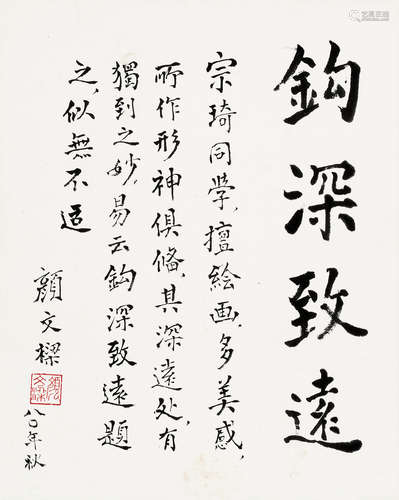 鈎深致遠
宗琦同學,擅繪画,多美感,
所作形神俱俻,其深遠處,有
獨到之妙,易云鈎深致遠題
之,似無不迨
顏文樑
八〇年秋